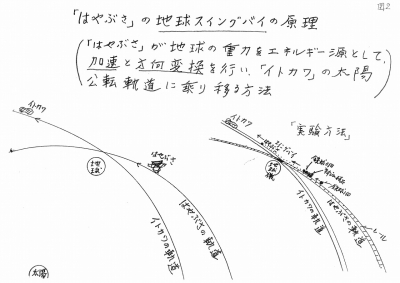 図2
「はやぶさ」の地球スイングバイの原理
(「はやぶさ」が地球の重力をエネルギー源として、
加速と方向変換を行い、「イトカワ」の太陽
公転軌道に乗り移る方法)
イトカワ
はやぶさ
地球
イトカワの軌道
はやぶさの軌道
太陽
イトカワ
「実験方法」
地球
イトカワの軌道
はやぶさの軌道
レール